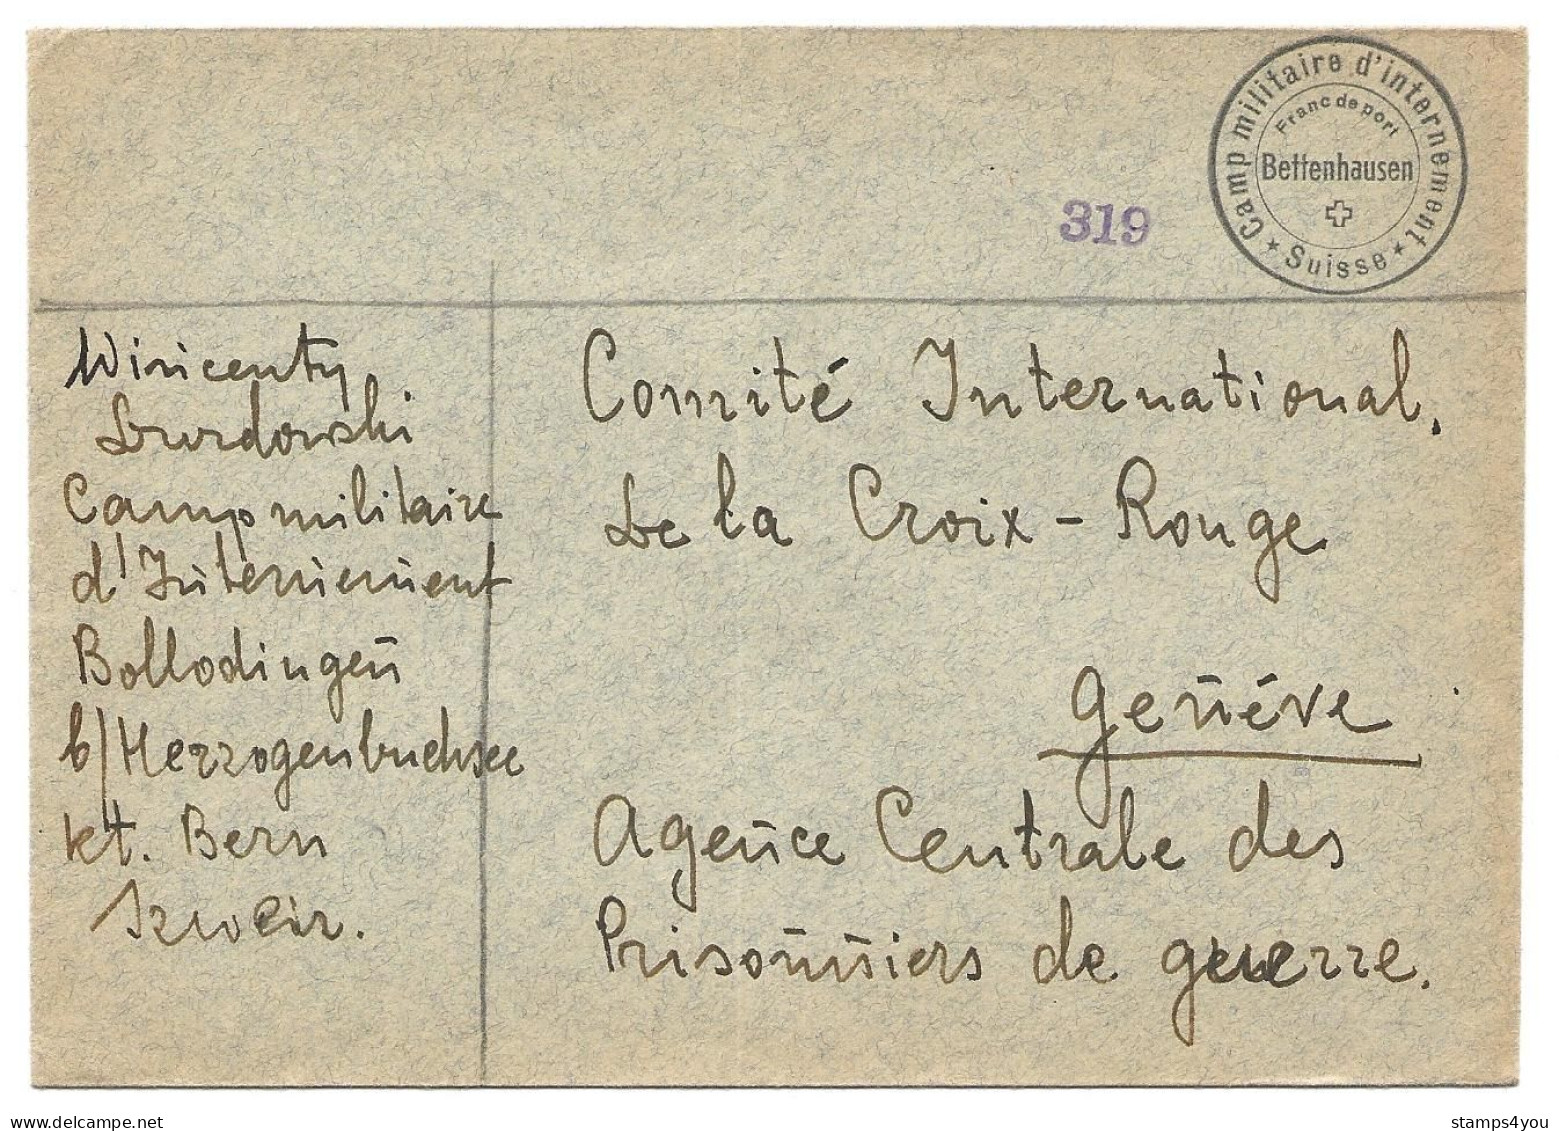 Camp militaire d'internement
Franc de port
Bettenhausen
Suisse
319
Wincenty
Camp militaire
d'Internement
Bollodingen
b/Herzogenbuchsee
kt. Bern
Comité International.
De la Croix-Rouge
Genéve
Agence Centrale des
Prisonniers de guerre.
delcampe.net
stamps4you